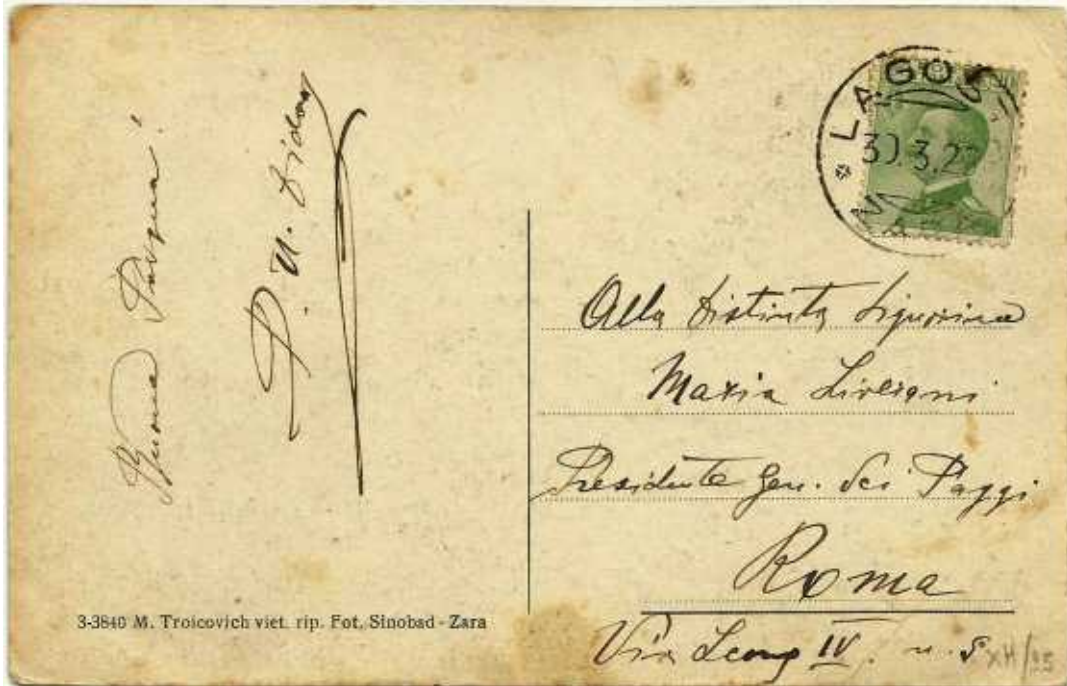 Buona Pasqua!
P. U.
LAGOS
30.3.2
Alla distinta Signorina
Maria
Presidente Gen. dei Paggi
Roma
Via Leone IV. n. 5
XH/35
3-3840 M. Troicovich viet. rip. Fot. Sinobad - Zara